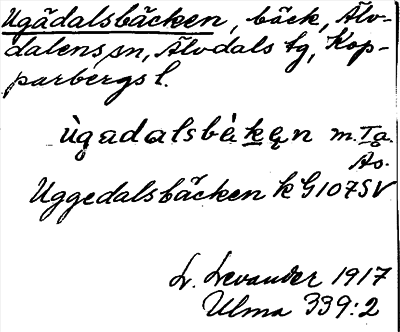 Ugådalsbäcken, bäck, Älv-
dalens sn, Älvdals tg, Kop-
parbergs l.
ùgadalsbèkęn m. Ig.
Ås.
Uggedalsbäcken k G107SV
L. Levander 1917
Ulma 339:2